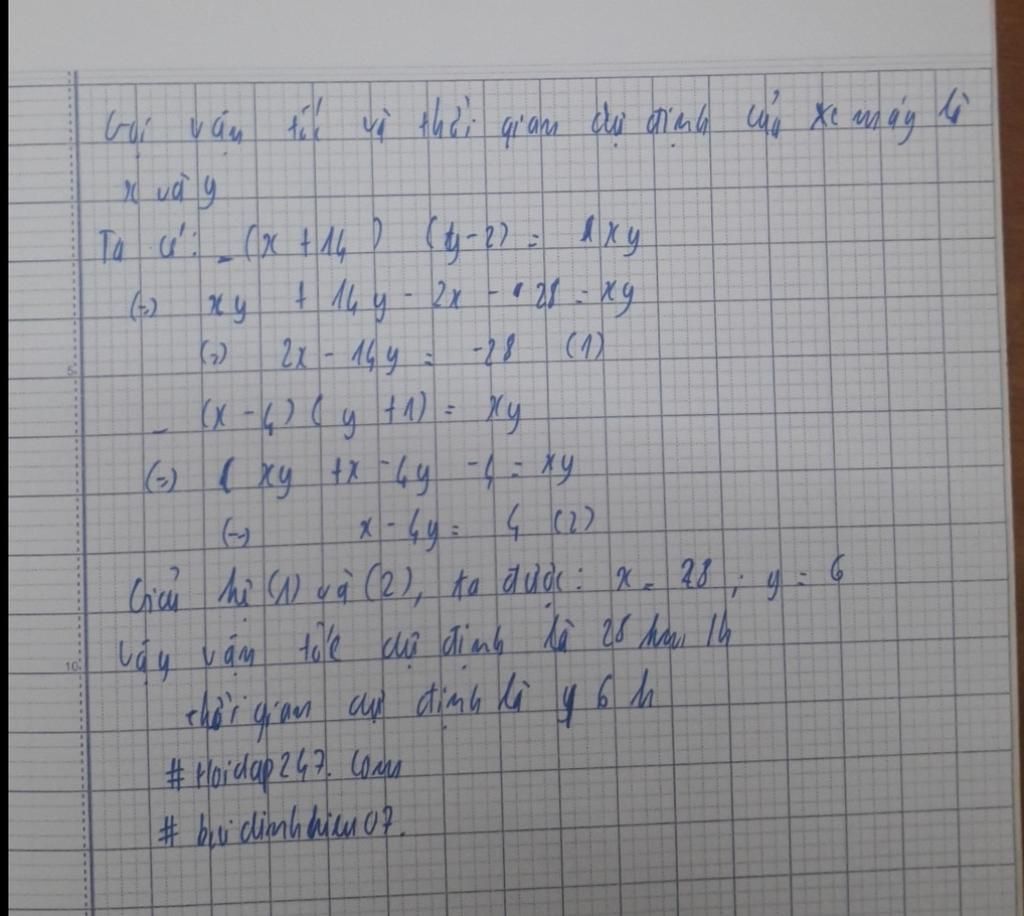 Gọi vận tốc và thời gian dự định của xe máy là
x và y
Ta có: - (x + 14) (y - 2) = xy
(=) xy + 14y - 2x - 28 = xy
(=) 2x - 14y = -28 (1)
- (x - 4) (y + 1) = xy
(=) xy + x - 4y - 4 = xy
(=) x - 4y = 4 (2)
Giải hệ (1) và (2), ta được: x = 28 ; y = 6
Vậy vận tốc dự định là 28 km/h
thời gian dự định là y 6 h
# Hoidap247.com
# buidinhhieu07.
5
10